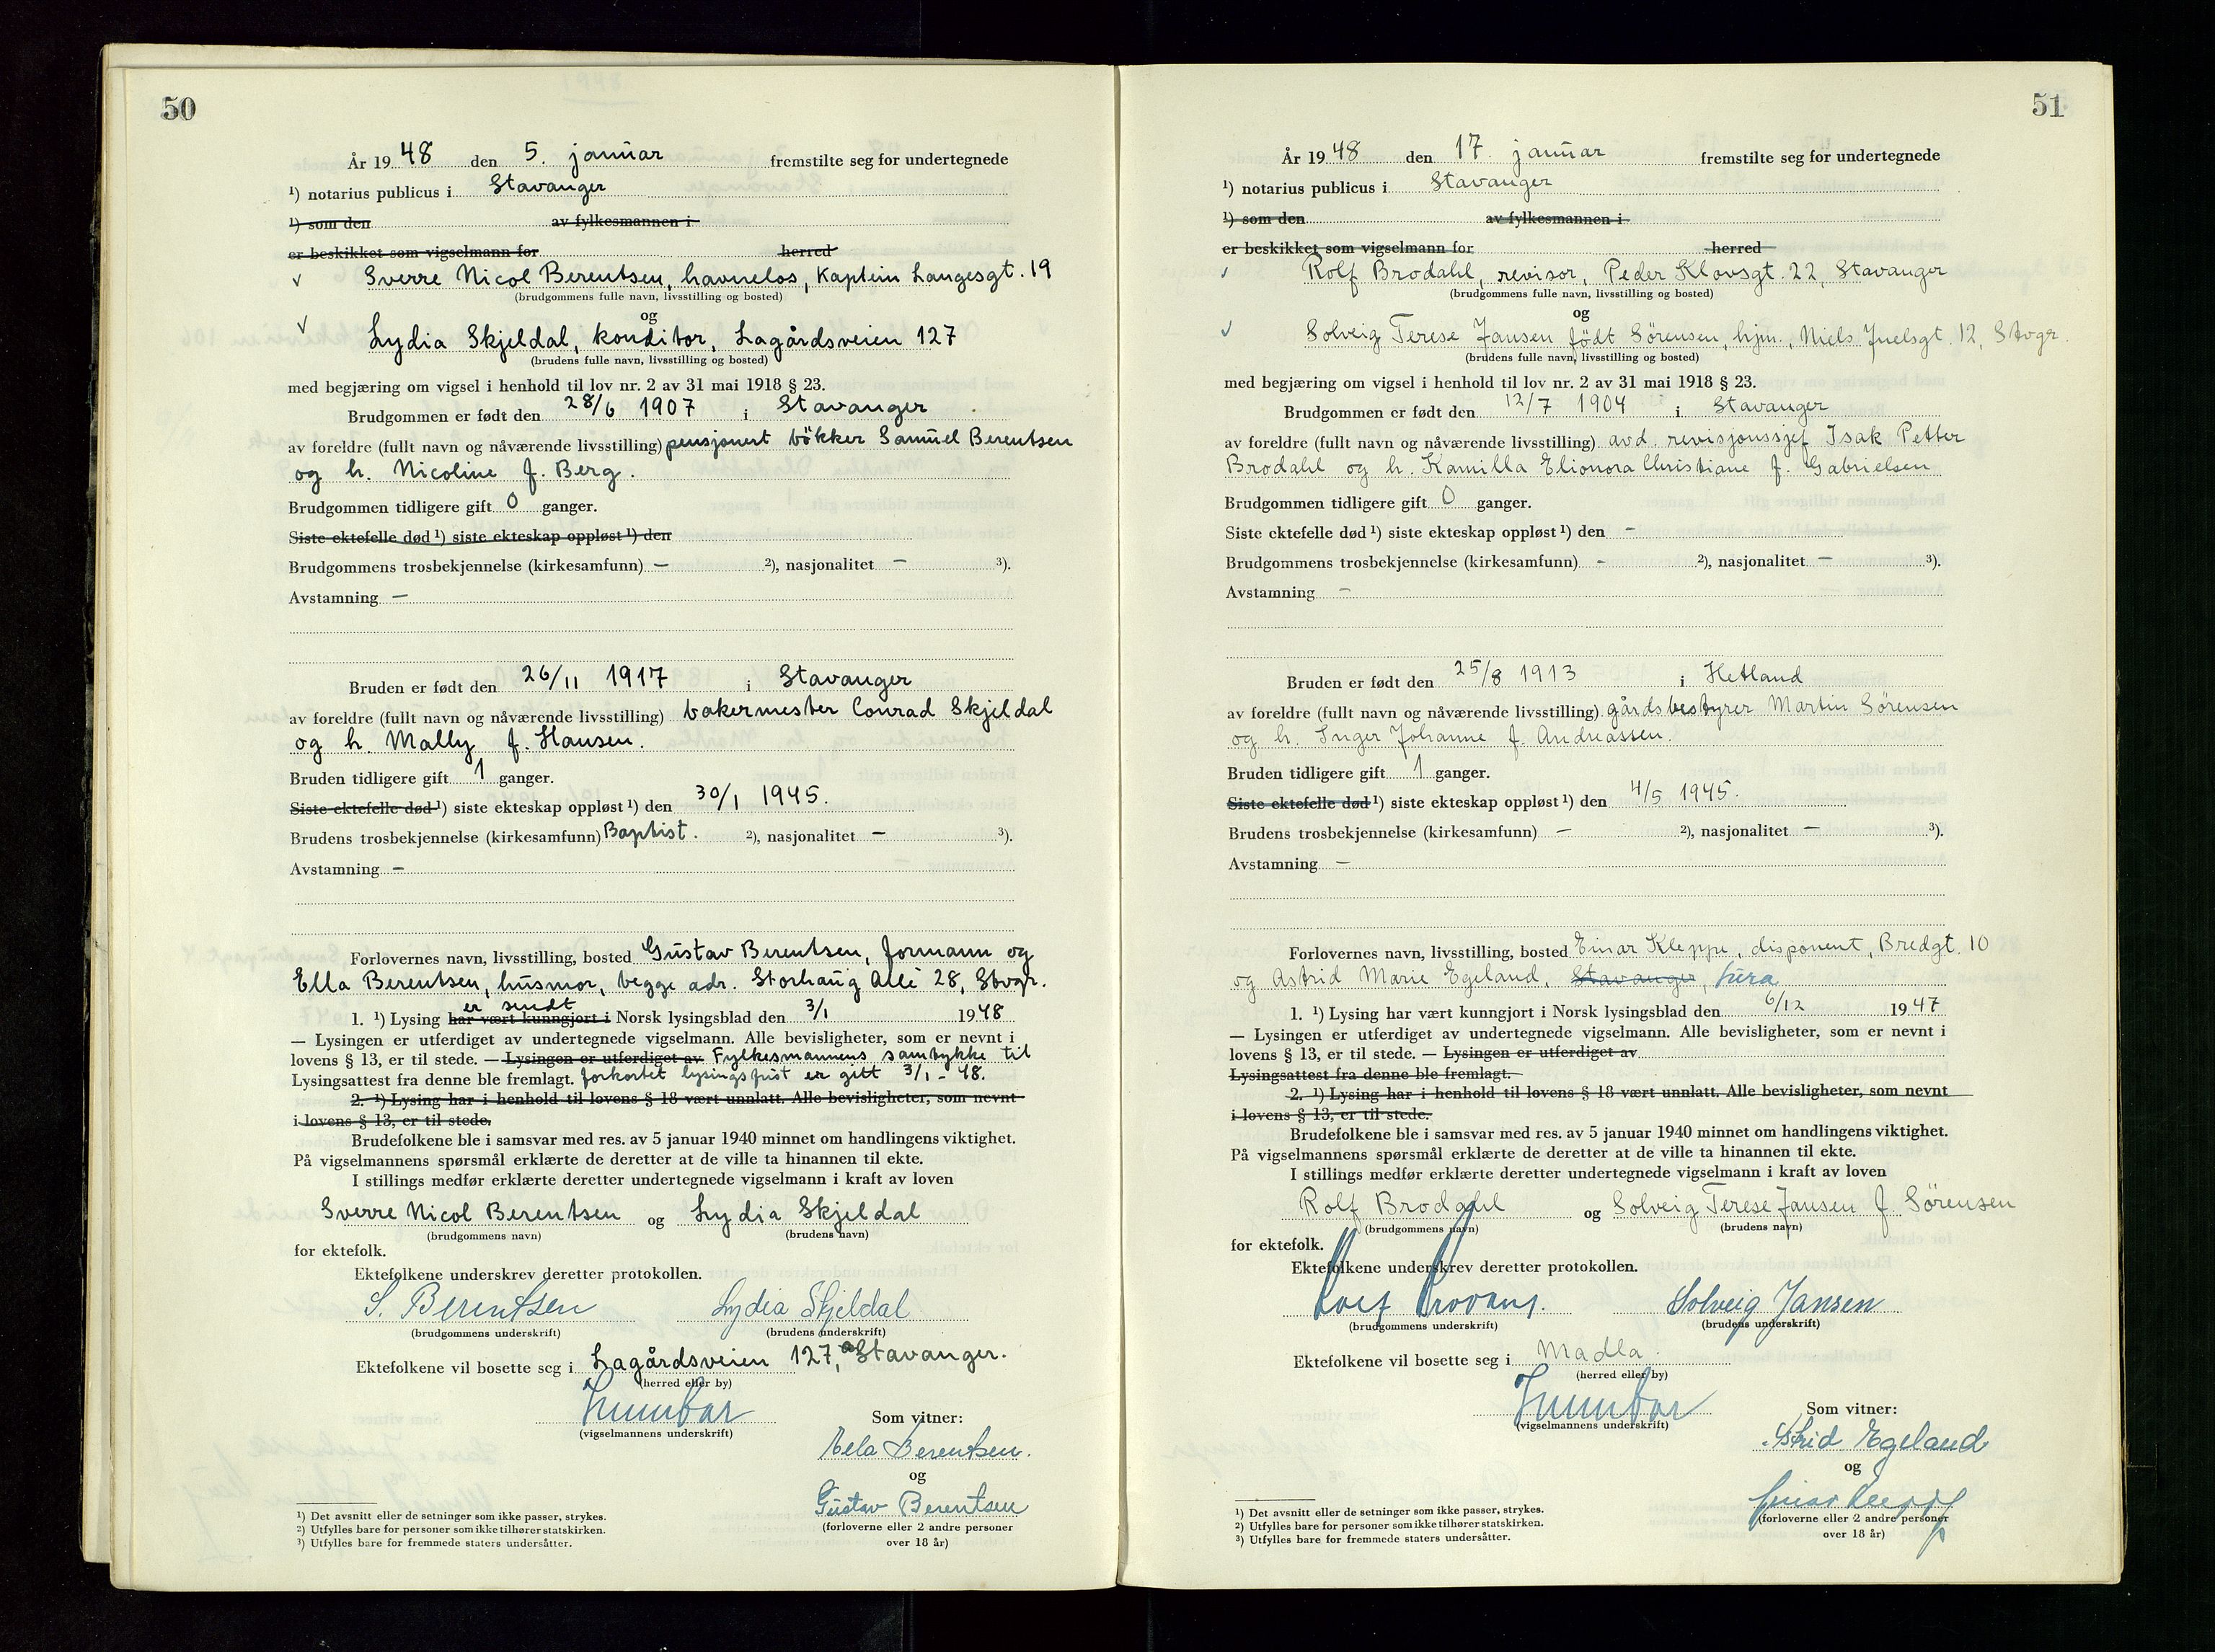 50
År 1948 den 5. januar fremstilte seg for undertegnede
¹) notarius publicus i Stavanger
¹) som den av fylkesmannen i
er beskikket som vigselmann for herred
√ Sverre Nicol Berentsen, havnelos, Kaptein Langesgt. 19
(brudgommens fulle navn, livsstilling og bosted)
og
√ Lydia Skjeldal, konditor, Lagårdsveien 127
(brudens fulle navn, livsstilling og bosted)
med begjæring om vigsel i henhold til lov nr. 2 av 31 mai 1918 § 23.
Brudgommen er født den 28/6 1907 i Stavanger
av foreldre (fullt navn og nåværende livsstilling) pensjonert bökker Samuel Berentsen
og h. Nicoline f. Berg.
Brudgommen tidligere gift 0 ganger.
Siste ektefelle død ¹) siste ekteskap oppløst ¹) den
Brudgommens trosbekjennelse (kirkesamfunn) – ²), nasjonalitet – ³).
Avstamning –
Bruden er født den 26/11 1917 i Stavanger
av foreldre (fullt navn og nåværende livsstilling) bakermester Conrad Skjeldal
og h. Mally f. Hansen.
Bruden tidligere gift 1 ganger.
Siste ektefelle død ¹) siste ekteskap oppløst ¹) den 30/1 1945.
Brudens trosbekjennelse (kirkesamfunn) Baptist. ²), nasjonalitet – ³).
Avstamning –
Forlovernes navn, livsstilling, bosted Gustav Berentsen, formann og
Ella Berentsen, husmor, begge adr. Storhaug Allé 28, Stvgr.
er sendt
1. ¹) Lysing har vært kunngjort i Norsk lysingsblad den 3/1 1948
— Lysingen er utferdiget av undertegnede vigselmann. Alle bevisligheter, som er nevnt i
lovens § 13, er til stede. — Lysingen er utferdiget av Fylkesmannens samtykke til
Lysingsattest fra denne ble fremlagt. forkortet lysingsfrist er gitt 3/1 - 48.
2. ¹) Lysing har i henhold til lovens § 18 vært unnlatt. Alle bevisligheter, som nevnt
i lovens § 13, er til stede.
Brudefolkene ble i samsvar med res. av 5 januar 1940 minnet om handlingens viktighet.
På vigselmannens spørsmål erklærte de deretter at de ville ta hinannen til ekte.
I stillings medfør erklærte deretter undertegnede vigselmann i kraft av loven
Sverre Nicol Berentsen og Lydia Skjeldal
(brudgommens navn) (brudens navn)
for ektefolk.
Ektefolkene underskrev deretter protokollen.
S. Berentsen Lydia Skjeldal
(brudgommens underskrift) (brudens underskrift)
Ektefolkene vil bosette seg i Lagårdsveien 127, Stavanger.
(herred eller by)
(vigselmannens underskrift)
Som vitner:
Ella Berentsen.
og
Gustav Berentsen
(forloverne eller 2 andre personer
over 18 år)
¹) Det avsnitt eller de setninger som ikke passer, strykes.
²) Utfylles bare for personer som ikke tilhører statskirken.
³) Utfylles bare for fremmede staters undersåtter.
51
År 1948 den 17. januar fremstilte seg for undertegnede
¹) notarius publicus i Stavanger
¹) som den av fylkesmannen i
er beskikket som vigselmann for herred
√ Rolf Brodahl, revisor, Peder Klovsgt. 22, Stavanger
(brudgommens fulle navn, livsstilling og bosted)
og
√ Solveig Terese Jansen født Sörensen, hjm., Niels Juelsgt. 12, Stvgr.
(brudens fulle navn, livsstilling og bosted)
med begjæring om vigsel i henhold til lov nr. 2 av 31 mai 1918 § 23.
Brudgommen er født den 12/7 1904 i Stavanger
av foreldre (fullt navn og nåværende livsstilling) avd. revisjonssjef Isak Petter
Brodahl og h. Kamilla Elionora Christiane f. Gabrielsen
Brudgommen tidligere gift 0 ganger.
Siste ektefelle død ¹) siste ekteskap oppløst ¹) den –
Brudgommens trosbekjennelse (kirkesamfunn) – ²), nasjonalitet – ³).
Avstamning –
Bruden er født den 25/8 1913 i Hetland
av foreldre (fullt navn og nåværende livsstilling) gårdsbestyrer Martin Sörensen
og h. Inger Johanne f. Andreassen.
Bruden tidligere gift 1 ganger.
Siste ektefelle død ¹) siste ekteskap oppløst ¹) den 4/5 1945.
Brudens trosbekjennelse (kirkesamfunn) – ²), nasjonalitet – ³).
Avstamning –
Forlovernes navn, livsstilling, bosted Einar Kleppe, disponent, Bredgt. 10
og Astrid Marie Egeland, Stavanger, fura
1. ¹) Lysing har vært kunngjort i Norsk lysingsblad den 6/12 1947
— Lysingen er utferdiget av undertegnede vigselmann. Alle bevisligheter, som er nevnt i
lovens § 13, er til stede. — Lysingen er utferdiget av
Lysingsattest fra denne ble fremlagt.
2. ¹) Lysing har i henhold til lovens § 18 vært unnlatt. Alle bevisligheter, som nevnt
i lovens § 13, er til stede.
Brudefolkene ble i samsvar med res. av 5 januar 1940 minnet om handlingens viktighet.
På vigselmannens spørsmål erklærte de deretter at de ville ta hinannen til ekte.
I stillings medfør erklærte deretter undertegnede vigselmann i kraft av loven
Rolf Brodahl og Solveig Terese Jansen f. Sörensen
(brudgommens navn) (brudens navn)
for ektefolk.
Ektefolkene underskrev deretter protokollen.
Rolf Brodahl. Solveig Jansen
(brudgommens underskrift) (brudens underskrift)
Ektefolkene vil bosette seg i Madla.
(herred eller by)
(vigselmannens underskrift)
Som vitner:
Astrid Egeland
og
Einar Kleppe
(forloverne eller 2 andre personer
over 18 år)
¹) Det avsnitt eller de setninger som ikke passer, strykes.
²) Utfylles bare for personer som ikke tilhører statskirken.
³) Utfylles bare for fremmede staters undersåtter.